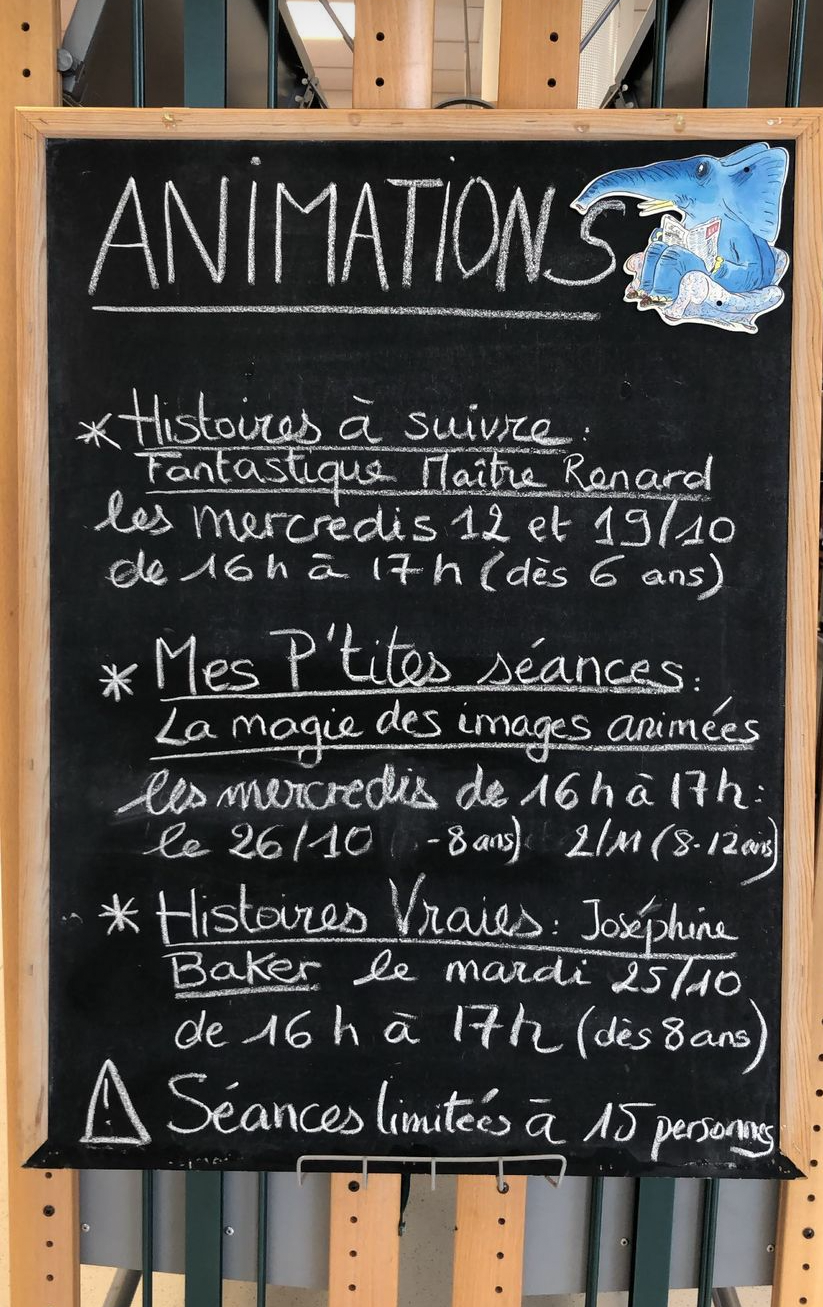 ANIMATIONS
* Histoires à suivre :
Fantastique Maître Renard
les mercredis 12 et 19/10
de 16h à 17h (dès 6 ans)
* Mes P'tites séances :
La magie des images animées
les mercredis de 16h à 17h :
le 26/10 -8 ans) 2/11 (8-12 ans)
* Histoires Vraies : Joséphine
Baker le mardi 25/10
de 16h à 17h (dès 8 ans)
! Séances limitées à 15 personnes